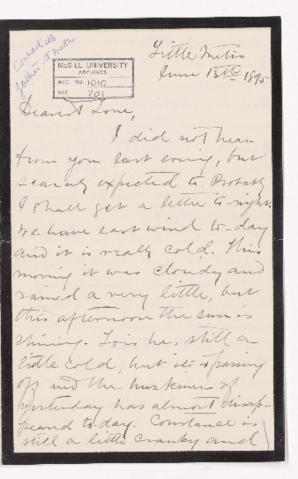 Little Metis
June 18th 1895
McGILL UNIVERSITY
ARCHIVES
ACC. NO. 1010
REF. 201
Dearest Love,
I did not hear
from you last evening, but
scarcely expected to. Probably
I shall get a letter to-night.
We have east wind to-day
and it is really cold. This
morning it was cloudy and
rained a very little, but
this afternoon the sun is
shining. Lois has still a
little cold, but it is passing
off and the huskiness of
yesterday has almost disap-
peared to-day. Constance is
still a little cranky and